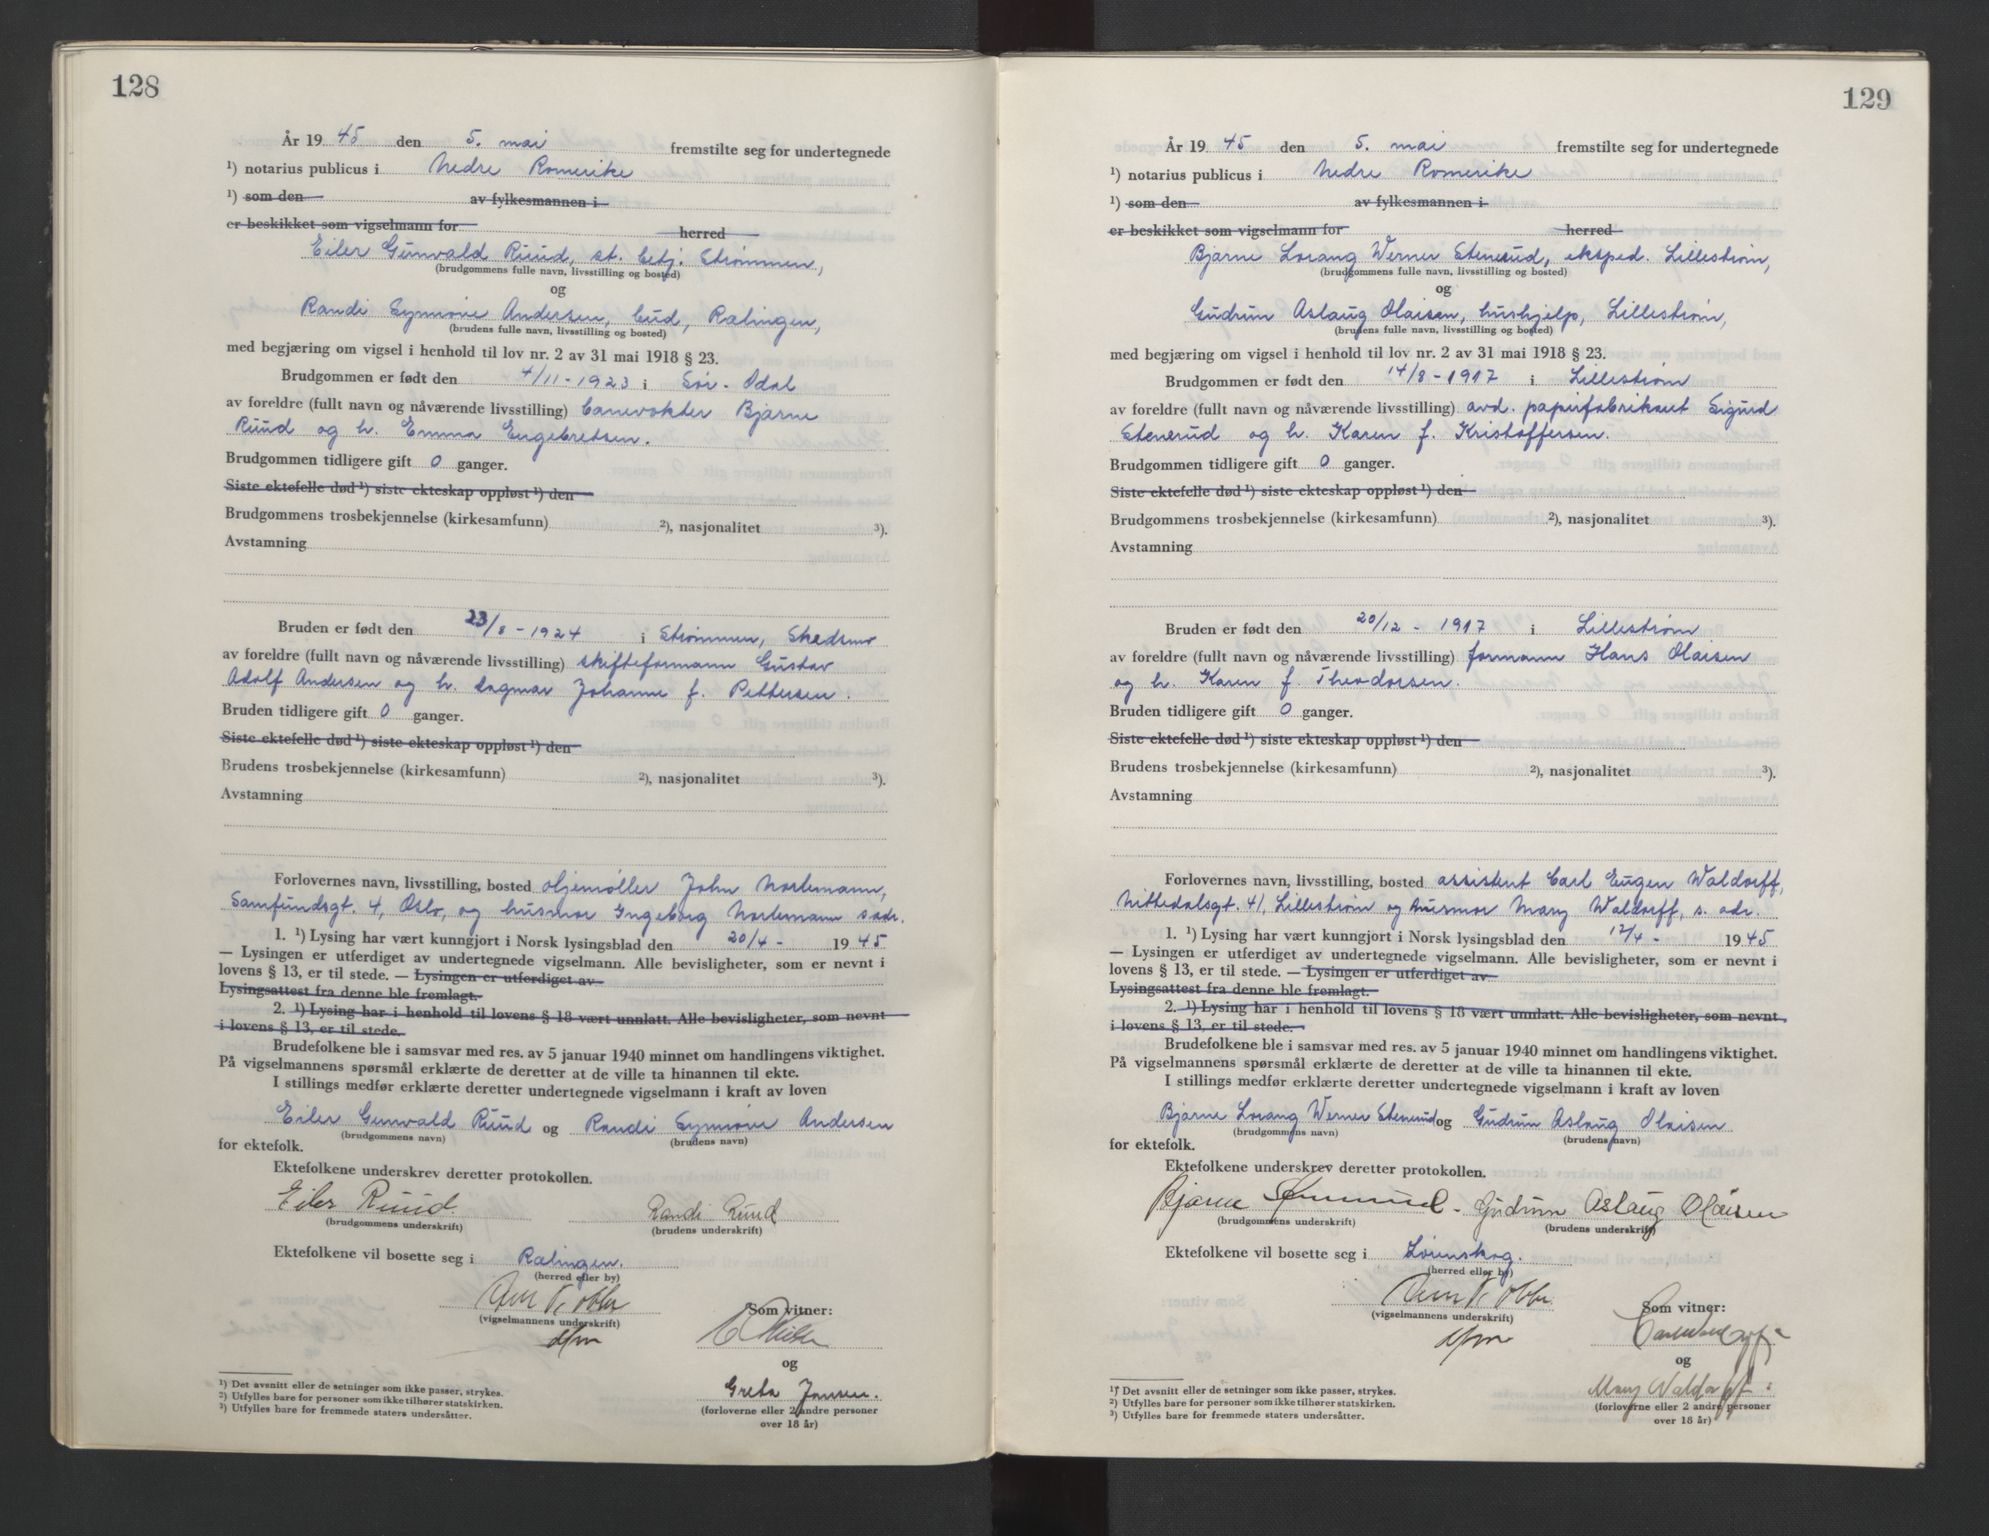 128
År 19 45 den 5. mai fremstilte seg for undertegnede
¹) notarius publicus i Nedre Romerike
¹) som den av fylkesmannen i
er beskikket som vigselmann for herred
Eiler Gunvald Ruud, st. betj. Strømmen,
(brudgommens fulle navn, livsstilling og bosted)
og
Randi Synnøve Andersen, bud, Rælingen,
(brudens fulle navn, livsstilling og bosted)
med begjæring om vigsel i henhold til lov nr. 2 av 31 mai 1918 § 23.
Brudgommen er født den 4/11-1923 i Sør-Odal
av foreldre (fullt navn og nåværende livsstilling) banevokter Bjarne
Ruud og h. Emma Engebretsen.
Brudgommen tidligere gift 0 ganger.
Siste ektefelle død ¹) siste ekteskap oppløst ¹) den
Brudgommens trosbekjennelse (kirkesamfunn) ²), nasjonalitet ³).
Avstamning
Bruden er født den 23/8-1924 i Strømmen, Skedsmo
av foreldre (fullt navn og nåværende livsstilling) skifteformann Gustav
Adolf Andersen og h. Dagmar Johanne f. Pettersen.
Bruden tidligere gift 0 ganger.
Siste ektefelle død ¹) siste ekteskap oppløst ¹) den
Brudens trosbekjennelse (kirkesamfunn) ²), nasjonalitet ³).
Avstamning
Forlovernes navn, livsstilling, bosted oljemøller John Nortemann,
Samfundsgt. 4, Oslo, og husmor Ingeborg Nortemann s adr.
1. ¹) Lysing har vært kunngjort i Norsk lysingsblad den 20/4- 19 45
— Lysingen er utferdiget av undertegnede vigselmann. Alle bevisligheter, som er nevnt i
lovens § 13, er til stede. — Lysingen er utferdiget av
Lysingsattest fra denne ble fremlagt.
2. ¹) Lysing har i henhold til lovens § 18 vært unnlatt. Alle bevisligheter, som nevnt
i lovens § 13, er til stede.
Brudefolkene ble i samsvar med res. av 5 januar 1940 minnet om handlingens viktighet.
På vigselmannens spørsmål erklærte de deretter at de ville ta hinannen til ekte.
I stillings medfør erklærte deretter undertegnede vigselmann i kraft av loven
Eiler Gunvald Ruud og Randi Synnøve Andersen
(brudgommens navn) (brudens navn)
for ektefolk.
Ektefolkene underskrev deretter protokollen.
Eiler Ruud. Randi Ruud
(brudgommens underskrift) (brudens underskrift)
Ektefolkene vil bosette seg i Rælingen.
(herred eller by)
Som vitner:
(vigselmannens underskrift)
og
Greta Jansen.
(forloverne eller 2 andre personer
over 18 år)
¹) Det avsnitt eller de setninger som ikke passer, strykes.
²) Utfylles bare for personer som ikke tilhører statskirken.
³) Utfylles bare for fremmede staters undersåtter.
129
År 19 45 den 5. mai fremstilte seg for undertegnede
¹) notarius publicus i Nedre Romerike
¹) som den av fylkesmannen i
er beskikket som vigselmann for herred
Bjarne Lorang Werner Stenerud, eksped. Lillestrøm,
(brudgommens fulle navn, livsstilling og bosted)
og
Gudrun Aslaug Olaisen, hushjelp, Lillestrøm,
(brudens fulle navn, livsstilling og bosted)
med begjæring om vigsel i henhold til lov nr. 2 av 31 mai 1918 § 23.
Brudgommen er født den 14/8-1917 i Lillestrøm
av foreldre (fullt navn og nåværende livsstilling) avd. papirfabrikant Sigurd
Stenerud og h. Karen f. Kristoffersen.
Brudgommen tidligere gift 0 ganger.
Siste ektefelle død ¹) siste ekteskap oppløst ¹) den
Brudgommens trosbekjennelse (kirkesamfunn) ²), nasjonalitet ³).
Avstamning
Bruden er født den 20/12 - 1917 i Lillestrøm
av foreldre (fullt navn og nåværende livsstilling) formann Hans Olaisen
og h. Karen f. Theodorsen.
Bruden tidligere gift 0 ganger.
Siste ektefelle død ¹) siste ekteskap oppløst ¹) den
Brudens trosbekjennelse (kirkesamfunn) ²), nasjonalitet ³).
Avstamning
Forlovernes navn, livsstilling, bosted assistent Carl Eugen Waldorff,
Nittedalsgt. 41, Lillestrøm og husmor Mary Waldorff, s. adr.
1. ¹) Lysing har vært kunngjort i Norsk lysingsblad den 12/4 - 19 45
— Lysingen er utferdiget av undertegnede vigselmann. Alle bevisligheter, som er nevnt i
lovens § 13, er til stede. — Lysingen er utferdiget av
Lysingsattest fra denne ble fremlagt.
2. ¹) Lysing har i henhold til lovens § 18 vært unnlatt. Alle bevisligheter, som nevnt
i lovens § 13, er til stede.
Brudefolkene ble i samsvar med res. av 5 januar 1940 minnet om handlingens viktighet.
På vigselmannens spørsmål erklærte de deretter at de ville ta hinannen til ekte.
I stillings medfør erklærte deretter undertegnede vigselmann i kraft av loven
Bjarne Lorang Werner Stenerud og Gudrun Aslaug Olaisen
(brudgommens navn) (brudens navn)
for ektefolk.
Ektefolkene underskrev deretter protokollen.
Bjarne Stenerud - Gudrun Aslaug Olaisen
(brudgommens underskrift) (brudens underskrift)
Ektefolkene vil bosette seg i Lørenskog.
(herred eller by)
Som vitner:
(vigselmannens underskrift)
og
Mary Waldorff
(forloverne eller 2 andre personer
over 18 år)
¹) Det avsnitt eller de setninger som ikke passer, strykes.
²) Utfylles bare for personer som ikke tilhører statskirken.
³) Utfylles bare for fremmede staters undersåtter.